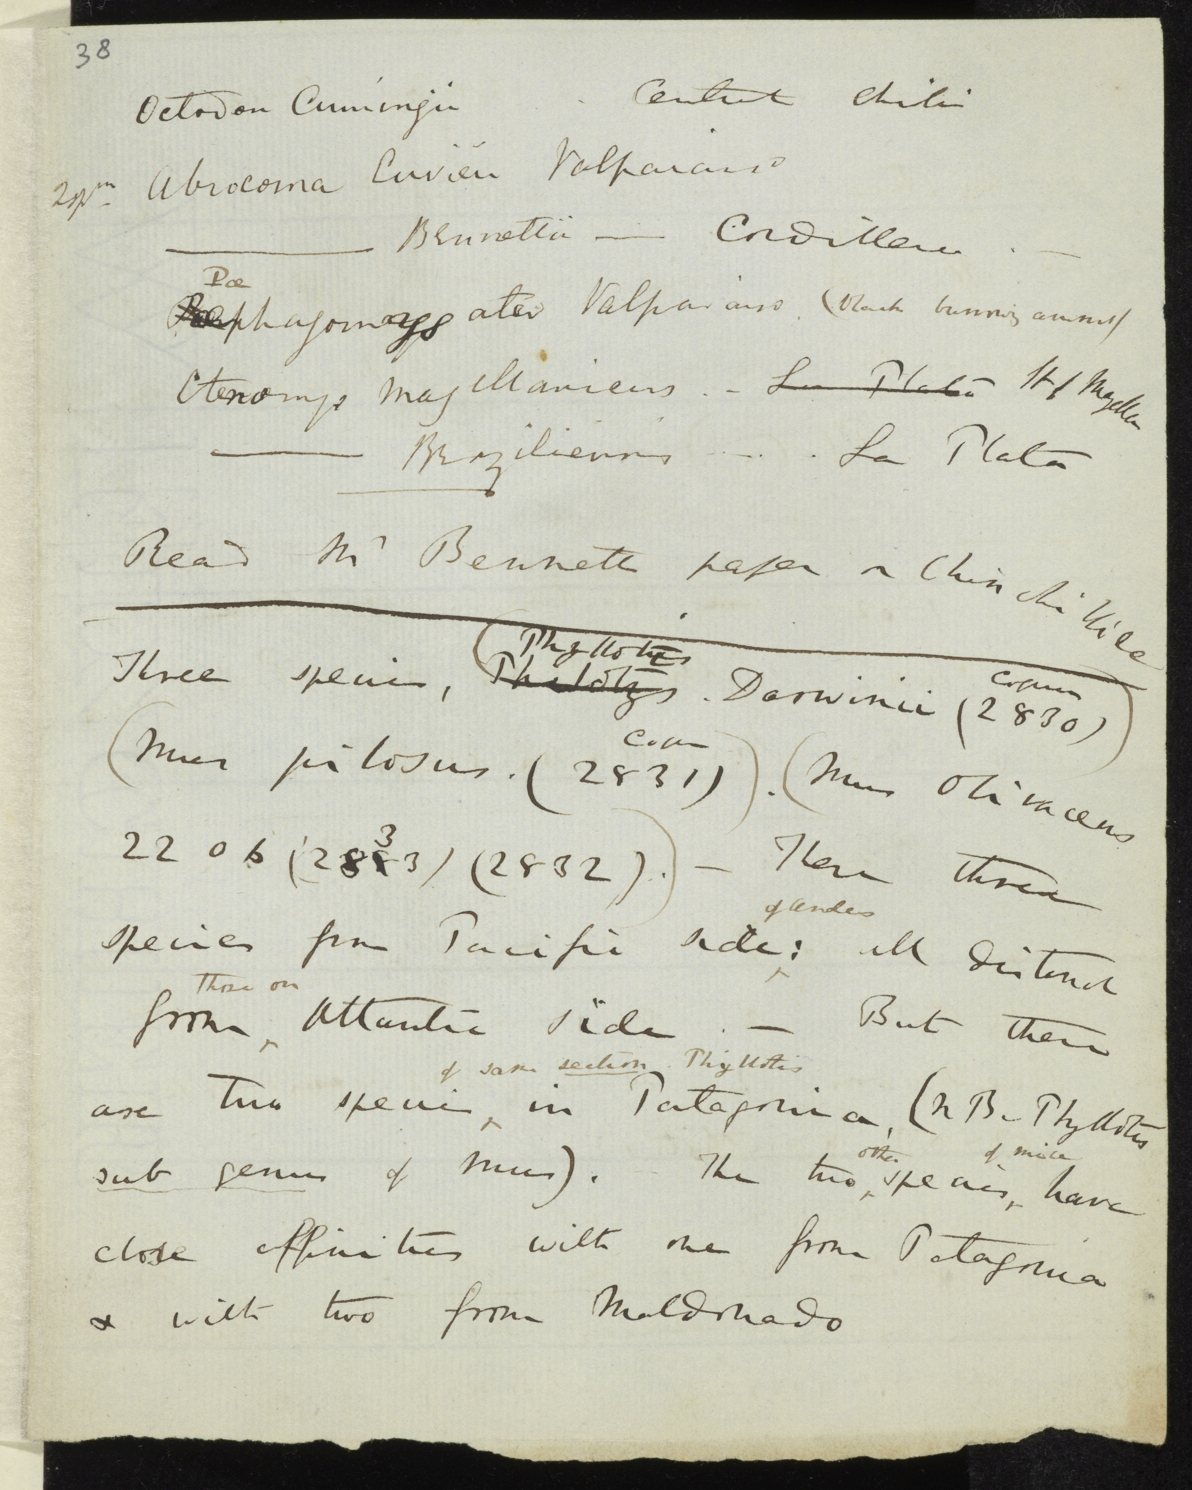 38
Octodon Cumingii Central Chili
2 spm Abrocoma Cuvieri Valparaiso
——— Bennettii — Cordillera —
Poe
Poephagomys ater Valparaiso. (black burrowing animal)
Ctenomys Magellanicus. — La Plata St of Magellan
——— Braziliensis — . La Plata
Read Mr Bennett paper on Chinchillidae
Phyllotis
Three species, (Philotys. Darwinii (2830))
(Mus pilosus. (2831)). (Mus Olivaceus
3
2206 (2883) (2832).) — These three
of Andes
species from Pacific side; all distinct
those on
from Atlantic side. — But there
of same section Phyllotis
are two species, in Patagonia, (N B. Phyllotis
sub genus of Mus). The two species, have
other of mice
close affinities with one from Patagonia
& with two from Maldonado